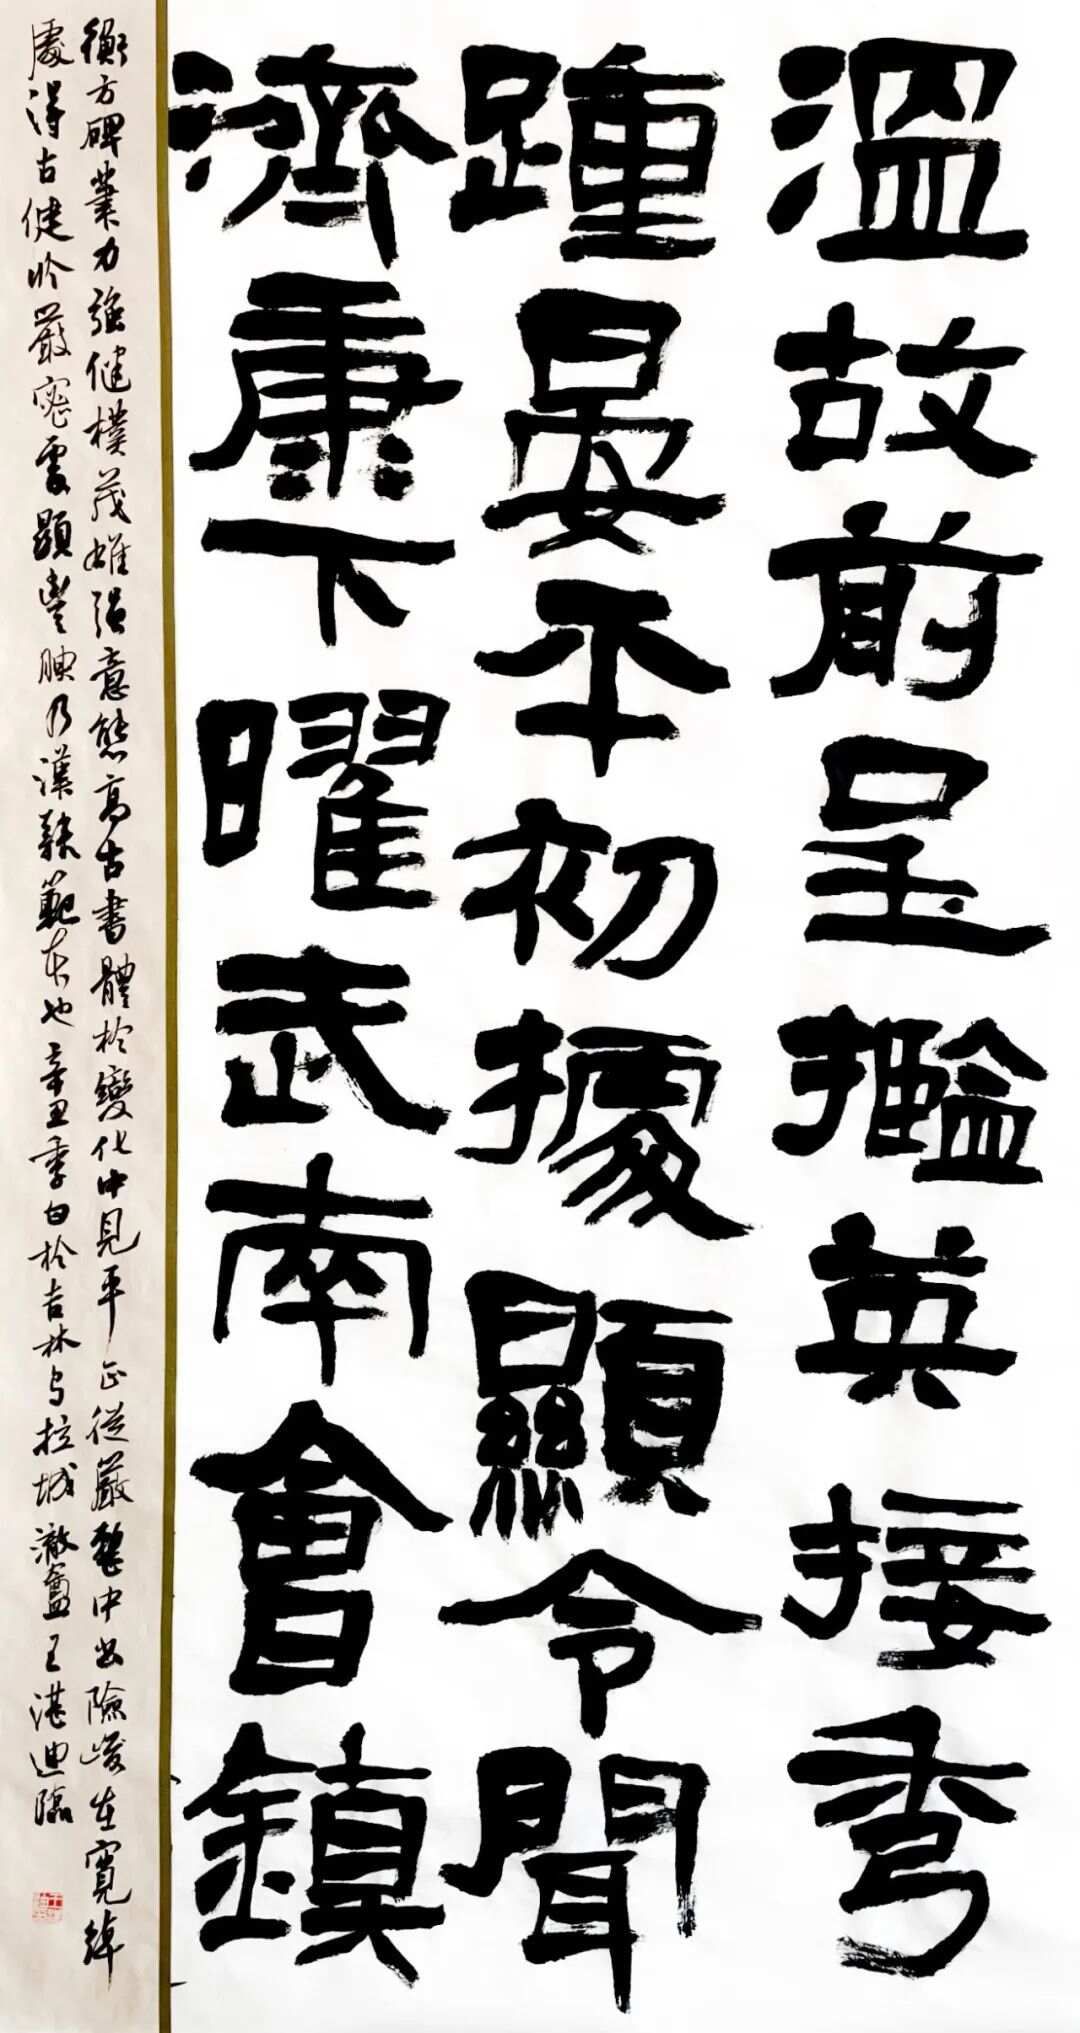 溫故前呈㩜英接秀
踵晏平初據顯令聞
濟康下曜武南會鎮
衡方碑筆力強健樸茂雄強意態高古書體於變化中見平正從嚴整中出險峻在寬綽
處得古健於嚴密處顯豐腴乃漢隸範本也辛丑季白於吉林烏拉城澈盦王湛迪臨